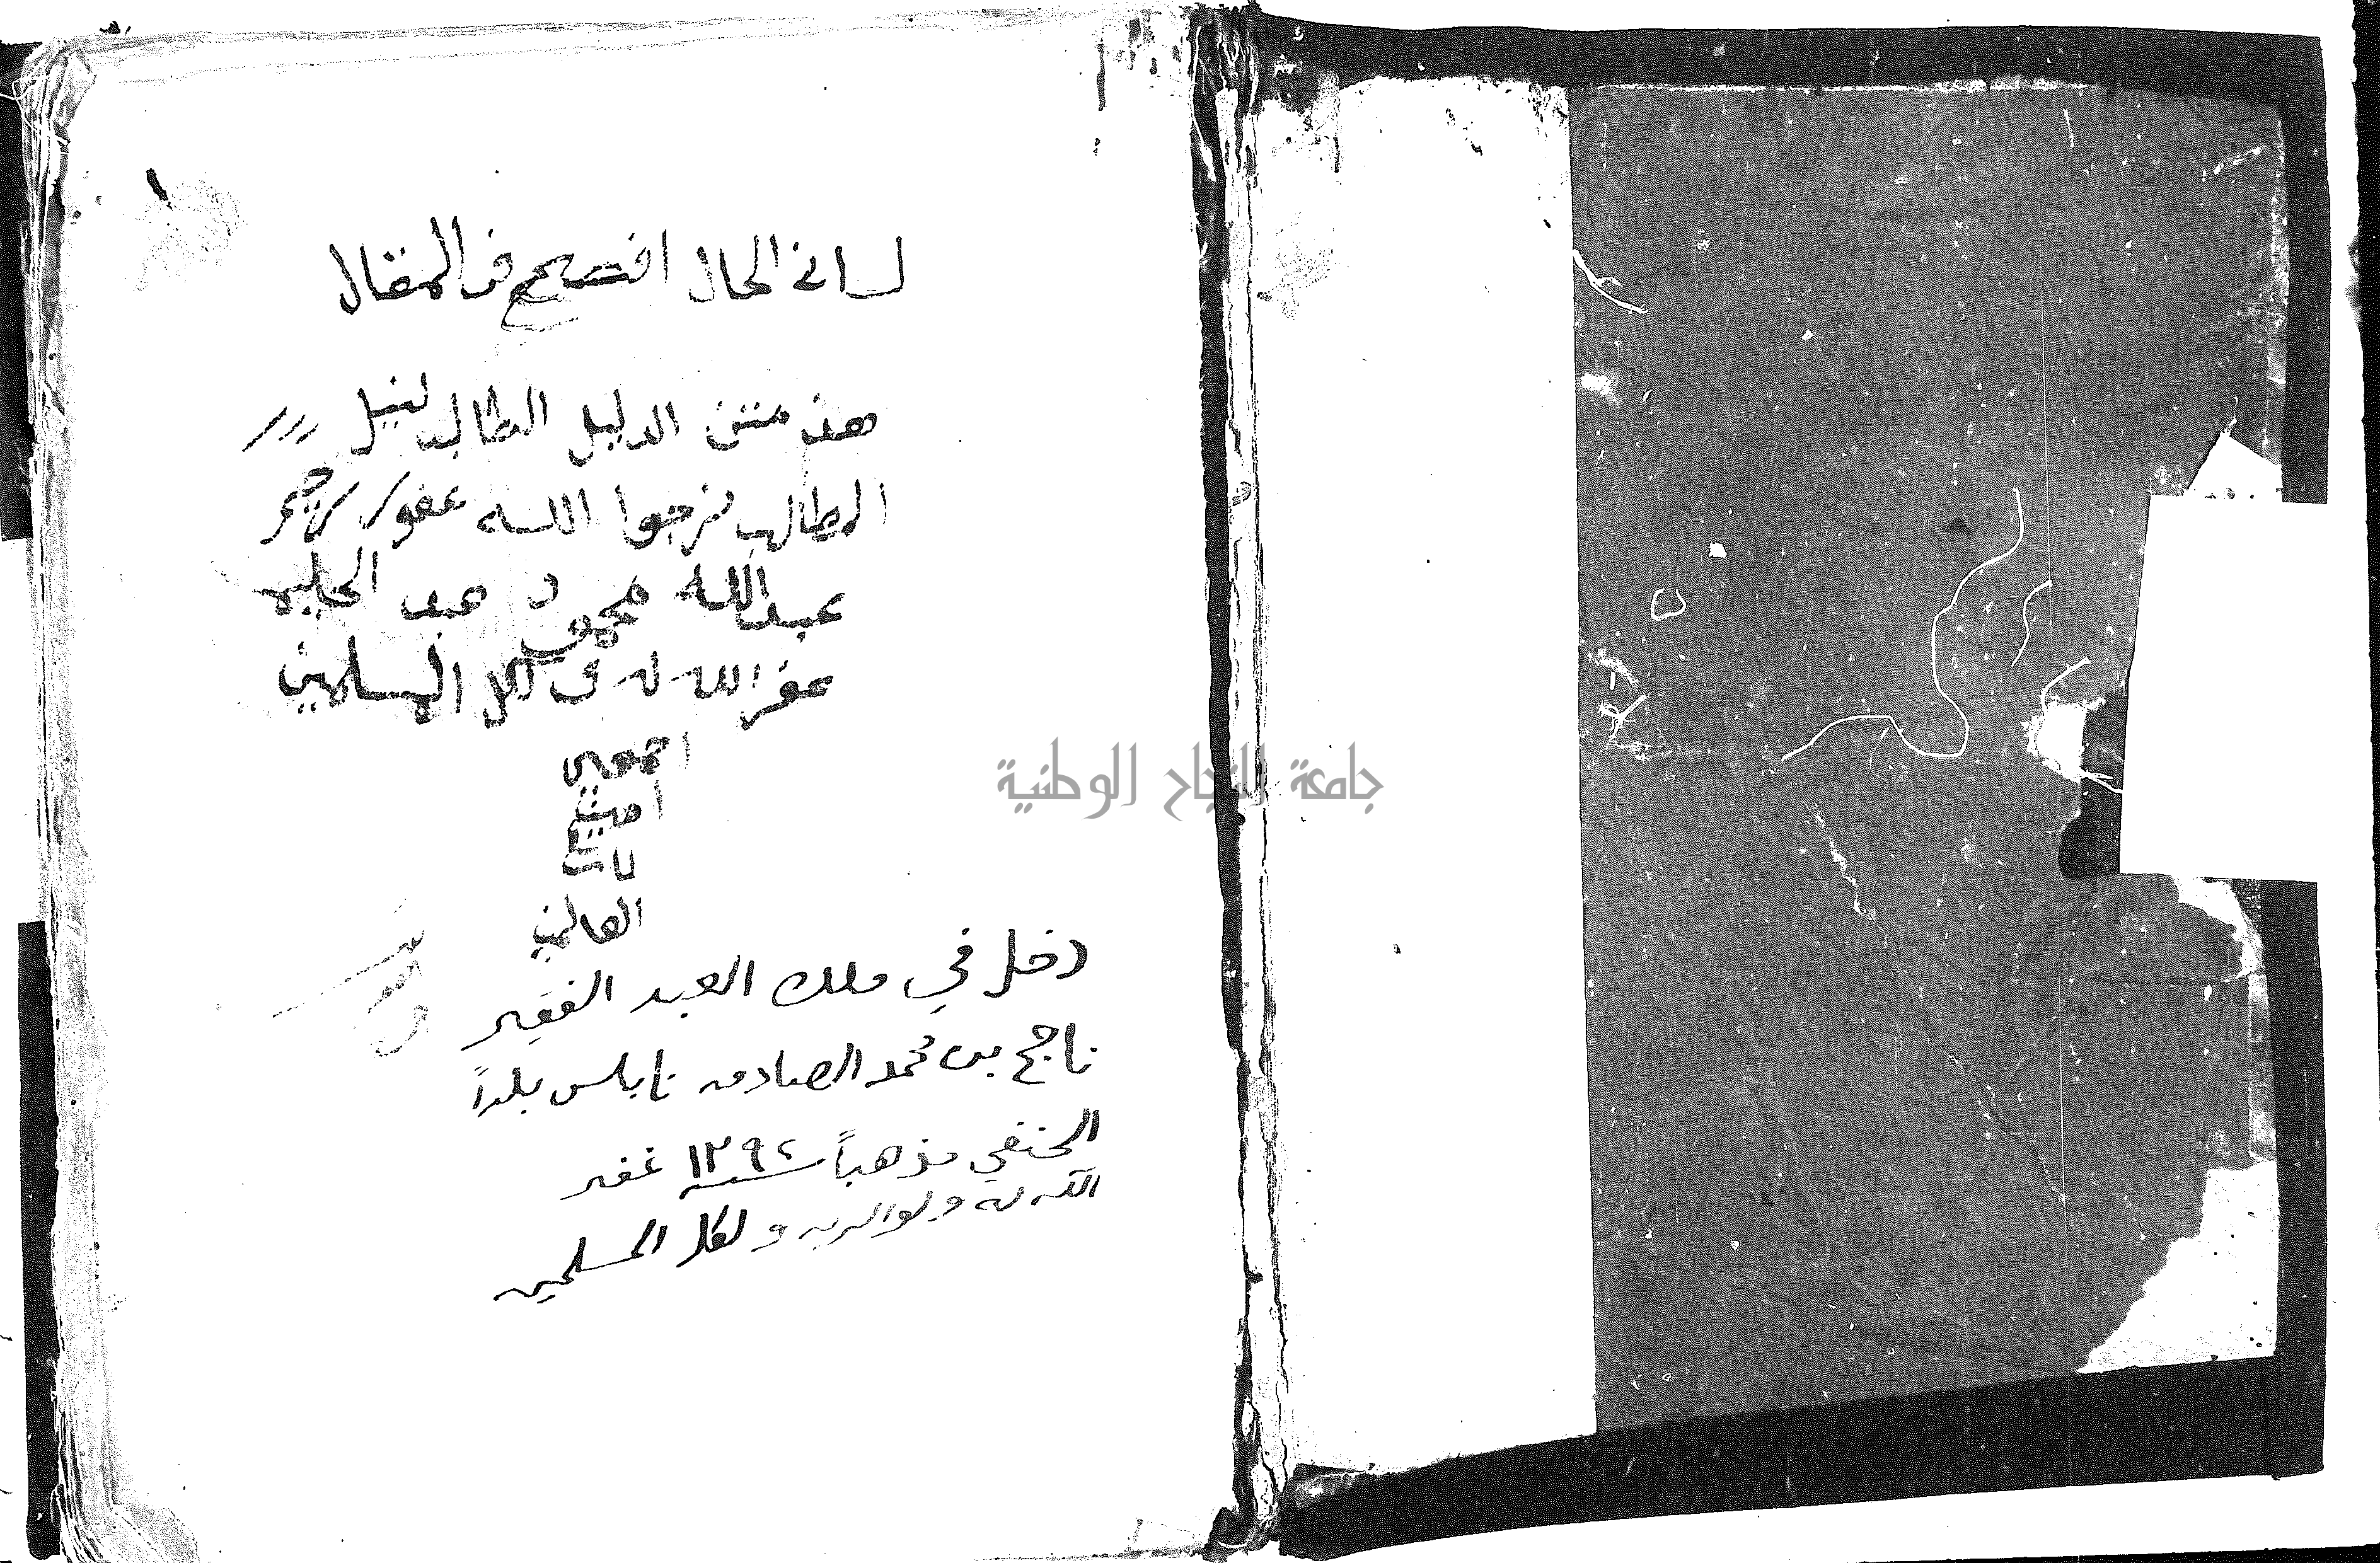 ١
لسان الحال افصح من المقال
هذ متن الدليل الطالب لنيل
المطالب نرجوا الله عفور رحيم
عبدالله محمود عبد الحليم
غفر الله له و لكل المسلمين
اجمعين
امين
يارب
العالمين
دخل في ملك العبد الفقير
ناجح بن محمد الصادق نابلس بلداً
الحنفي مذهباً سنة ١٣٩٤ غفر
الله له ولوالديه ولكل المسلمين
جامعة النجاح الوطنية